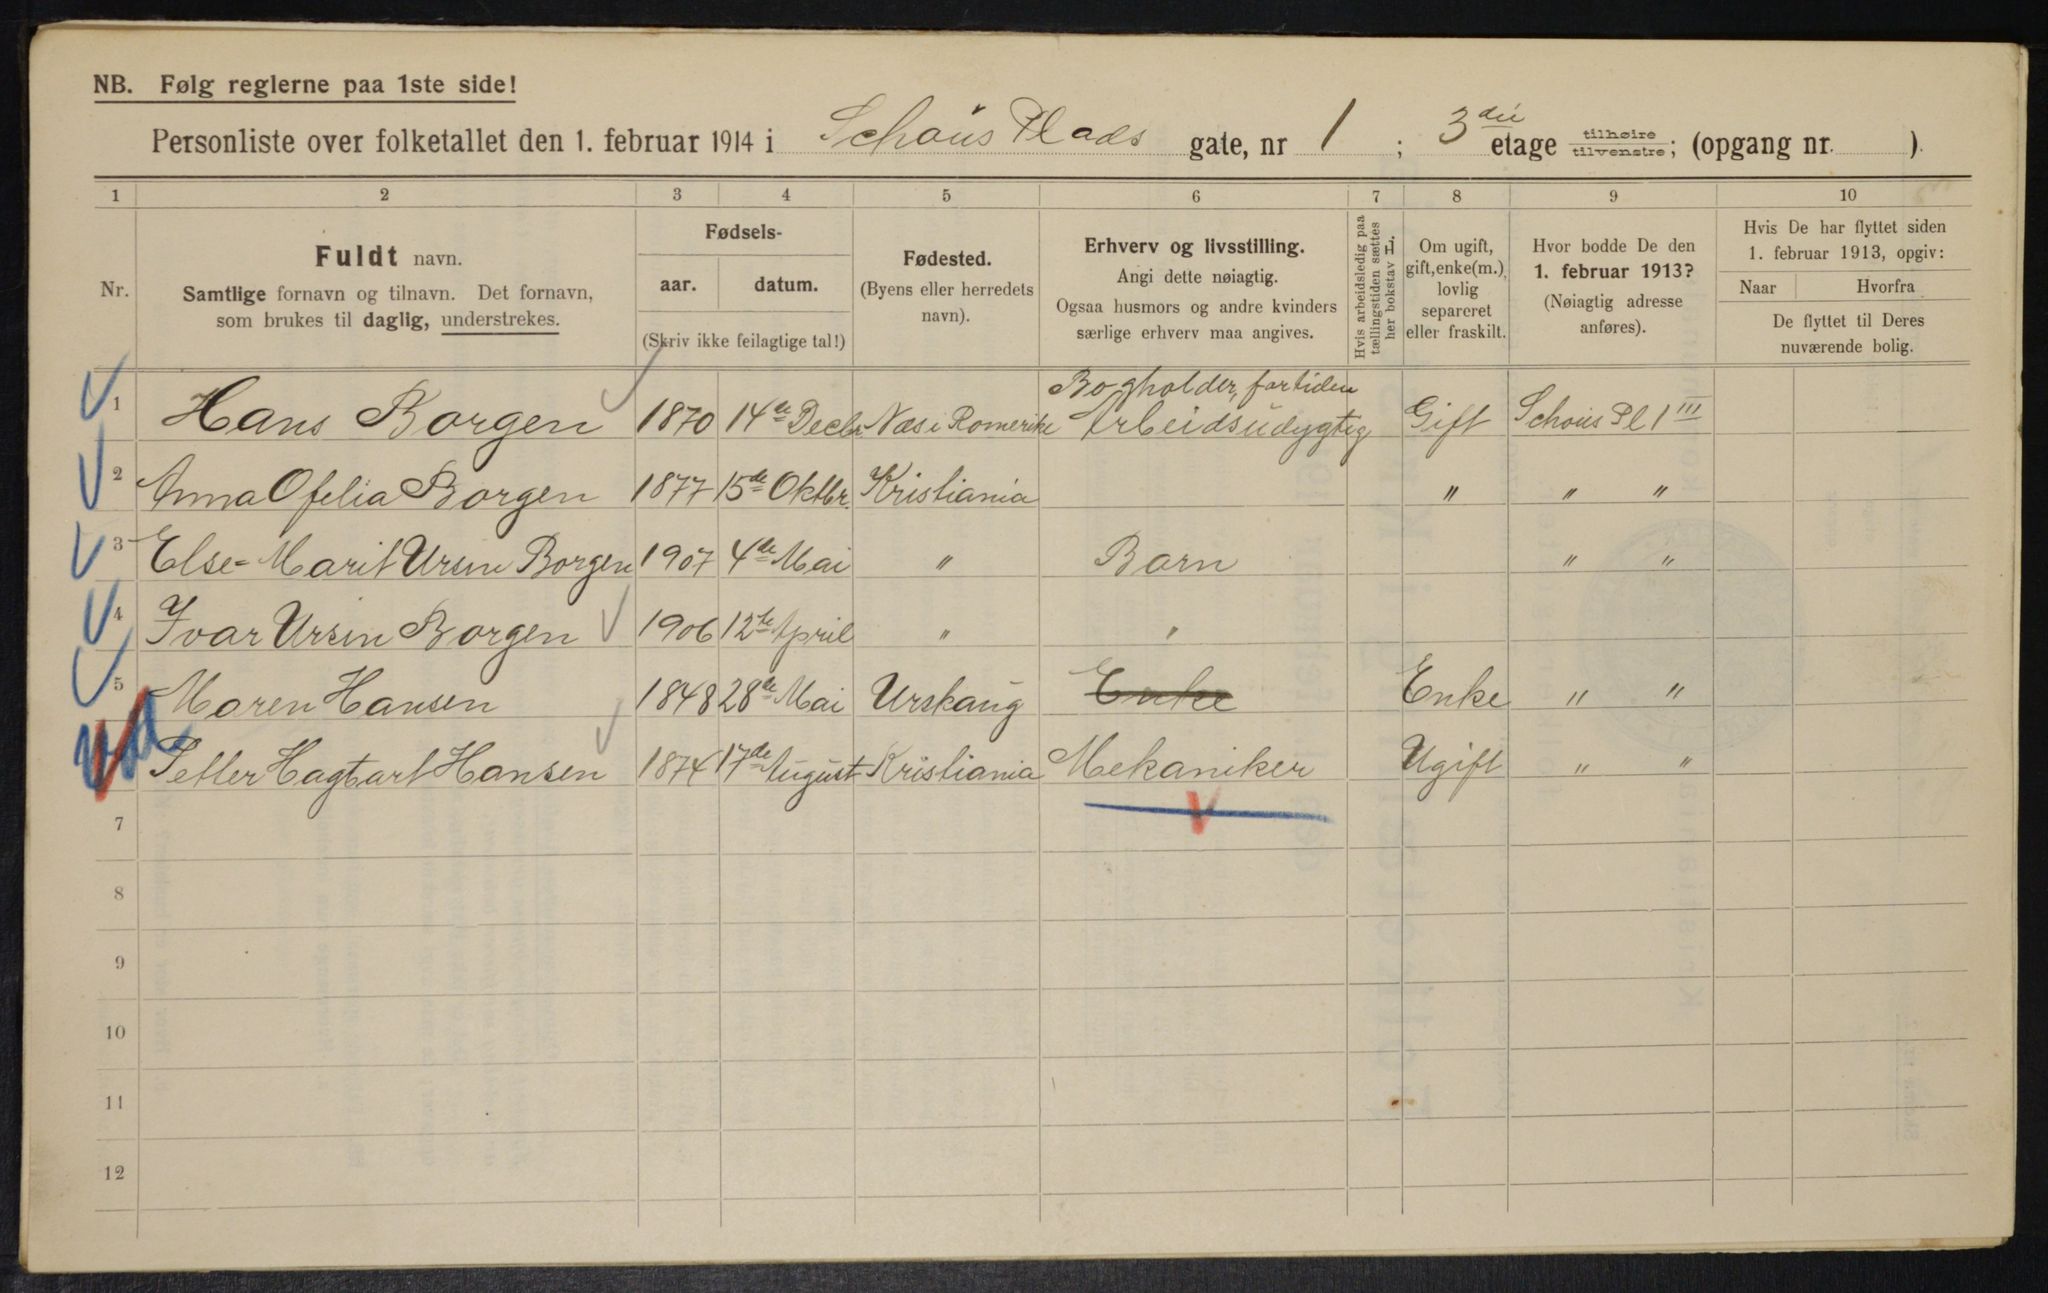 NB. Følg reglerne paa 1ste side!
Personliste over folketallet den 1. februar 1914 i Schous Plads gate, nr 1 ; 3die etage tilhøire tilvenstre; (opgang nr. ).
1 2 3 4 5 6 7 8 9 10
Nr.
Fuldt navn.
Samtlige fornavn og tilnavn. Det fornavn,
som brukes til daglig, understrekes.
Fødsels-
aar. datum.
(Skriv ikke feilagtige tal!)
Fødested.
(Byens eller herredets
navn).
Erhverv og livsstilling.
Angi dette nøiagtig.
Ogsaa husmors og andre kvinders
særlige erhverv maa angives.
Hvis arbeidsledig paa
tællingstiden sættes
her bokstav L.
Om ugift,
gift, enke(m.),
lovlig
separeret
eller fraskilt.
Hvor bodde De den
1. februar 1913?
(Nøiagtig adresse
anføres).
Hvis De har flyttet siden
1. februar 1913, opgiv:
Naar Hvorfra
De flyttet til Deres
nuværende bolig.
1 Hans Borgen 1870 14de Decbr Næs i Romerike Bogholder, fortiden
Arbeidsudygtig Gift Schous Pl 1 III
2 Anna Ofelia Borgen 1877 15de Oktbr. Kristiania " " "
3 Else-Marit Ursin Borgen 1907 4de Mai " Barn " "
4 Ivar Ursin Borgen 1906 12te April " "
5 Maren Hansen 1848 28de Mai Urskaug Enke Enke " "
Petter Hagbart Hansen 1874 17de August Kristiania Mekaniker Ugift " "
7
8
9
10
11
12